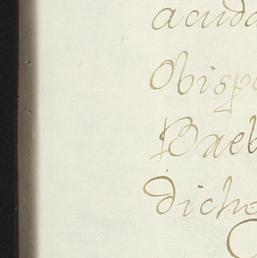 acuda
Obispo
Baeb
dicho